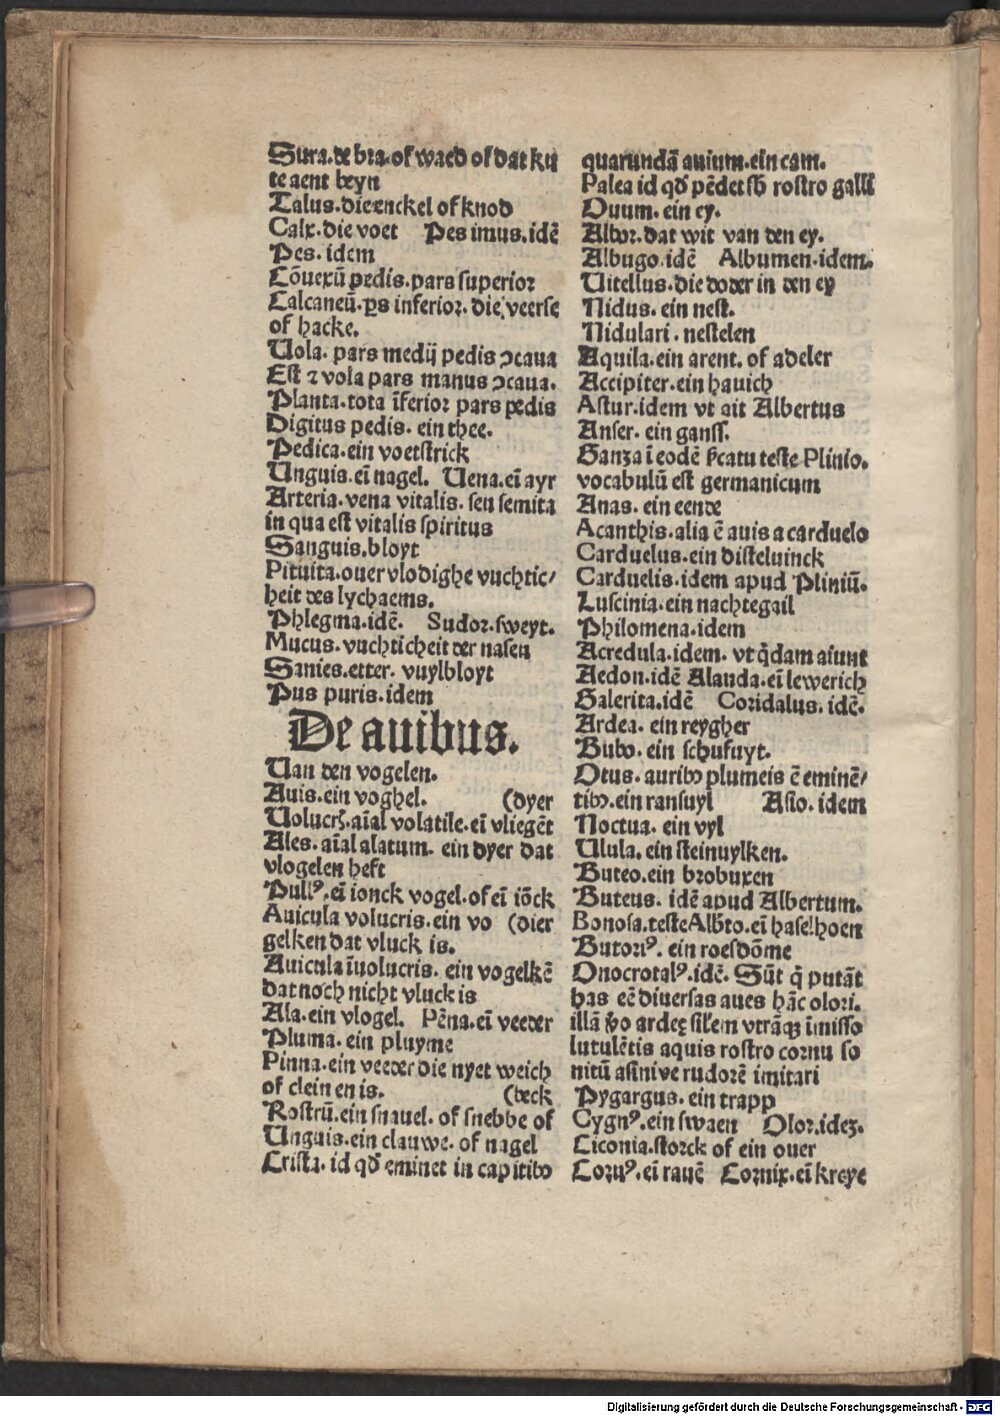 Sura.de bra.of waed of dat ku
te aent beyn
Talus.die enckel of knod
Calx.die voet Pes imus.idē
Pes.idem
Cōuexū pedis.pars superior
Calcaneū.ꝑs inferior.die veerse
of hacke.
Uola.pars medij pedis ↄcaua
Est ⁊ vola pars manus ↄcaua.
Planta.tota īferior pars pedis
Digitus pedis.ein thee.
Pedica.ein voetstrick
Unguis.eī nagel. Uena.eī ayr
Arteria.vena vitalis.seu semita
in qua est vitalis spiritus
Sanguis.bloyt
Pituita.ouervlodighe vuchtic/
heit des lychaems.
Phlegma.idē. Sudor.sweyt.
Mucus.vuchticheit der nasen
Sanies.etter.vuylbloyt
Pus puris.idem
De auibus.
Uan den vogelen.
Auis.ein voghel. (dyer
Uolucrꝭ.aīal volatile.eī vliegēt
Ales.aīal alatum.ein dyer dat
vlogelen heft
Pullꝰ.eī ionck vogel.of eī iōck
Auicula volucris.ein vo (dier
gelken dat vluck is.
Auicula īuolucris.ein vogelkē
dat noch nicht vluck is
Ala.ein vlogel. Pēna.eī veeder
Pluma.ein pluyme
Pinna.ein veeder die nyet weich
of clein en is. (beck
Rostrū.ein snauel.of snebbe of
Unguis.ein clauwe.of nagel
Crista.id qđ eminet in capitibꝰ
quarundā auium.ein cam.
Palea id qđ pēdet sb rostro galli
Ouum.ein ey.
Albor.dat wit van den ey.
Albugo.idē Albumen.idem.
Uitellus.die doder in den ey
Nidus.ein nest.
Nidulari.nestelen
Aquila.ein arent.of adeler
Accipiter.ein hauich
Astur.idem vt ait Albertus
Anser.ein ganss.
Ganza ī eodē sīcatu teste Plinio.
vocabulū est germanicum
Anas.ein eende
Acanthis.alia ē auis a carduelo
Carduelus.ein disteluinck
Carduelis.idem apud Pliniū.
Luscinia.ein nachtegail
Philomena.idem
Acredula.idem.vt q̄dam aiunt
Aedon.idē Alauda.eī lewerich
Galerita.idē Coridalus.idē.
Ardea.ein reygher
Bubo.ein schufuyt.
Otus.auribꝰ plumeis ē eminē/
tibꝰ.ein ransuyl Asio.idem
Noctua.ein vyl
Ulula.ein steinuylken.
Buteo.ein brobuxen
Buteus.idē apud Albertum.
Bonosa.teste Albto.eī haselhoen
Butorꝰ.ein roesdōme
Onocrotalꝰ.idē. Sūt q̄ putāt
has eē diuersas aues hāc olori.
illā ꝟo ardeę silem vtrāqꝫ īmisso
lutulētis aquis rostro cornu so
nitū asinive rudorē imitari
Pygargus.ein trapp
Cygnꝰ.ein swaen Olor.ideꝫ.
Ciconia.storck of ein ouer
Coruꝰ.eī rauē Cornix.eī kreye
Digitalisierung gefördert durch die Deutsche Forschungsgemeinschaft - DFG